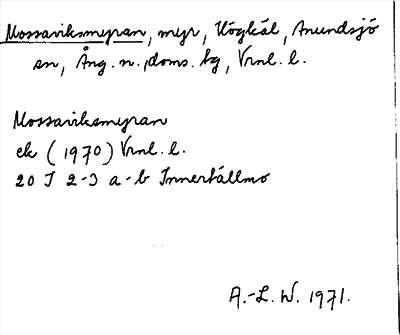 Mossaviksmyran, myr, Högkål, Anundsjö
sn, Ång. n. doms. bg, Vrnl. l.
Mossaviksmyran
ek (1970) Vrnl. l.
20 I 2-3 a-b Innertällmo
A.-L. W. 1971.